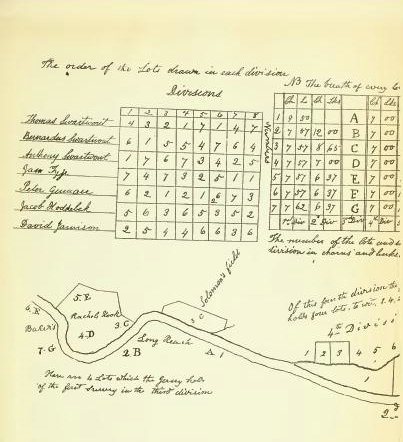 The order of the Lots drawn in each division
Divisions
1 2 3 4 5 6 7 8
Thomas Swartwout 4 3 2 1 7 1 4 7
Bernardus Swartwout 6 1 5 5 4 7 6 4
Anthony Swartwout 1 7 6 7 3 4 2 5
Jam Tyse 7 4 7 3 2 5 1 1
Peter Gumaer 6 2 1 2 1 6 7 3
Jacob Koddebek 5 6 3 6 5 3 5 2
David Jamison 2 5 4 4 6 6 3 6
NB The breath of every Lo
Ch L Ch Lks Ch Lks
1 9 50 A 7 00
2 7 57 12 00 B 7 00
3 7 57 8 65 C 7 00
4 7 57 7 00 D 7 00
5 7 57 6 37 E 7 00
6 7 57 6 37 F 7 00
7 7 62 6 37 G 7 00
1st Div 2d Div 3d Div 4th Div
The number of the lots and
division in chains and links.
Solomon's field
5. E
6. F
Rachel Hook
3 C
Bakers
4. D
3. C
Long Reach
7. G
2 B
A 1
Here are 4 Lots which the Jersey
of the first survey in the third division
Of this fourth division the
holds four lots, to wit, 1.4.
4th Divisi
1 2 3 4 5 6
1
2